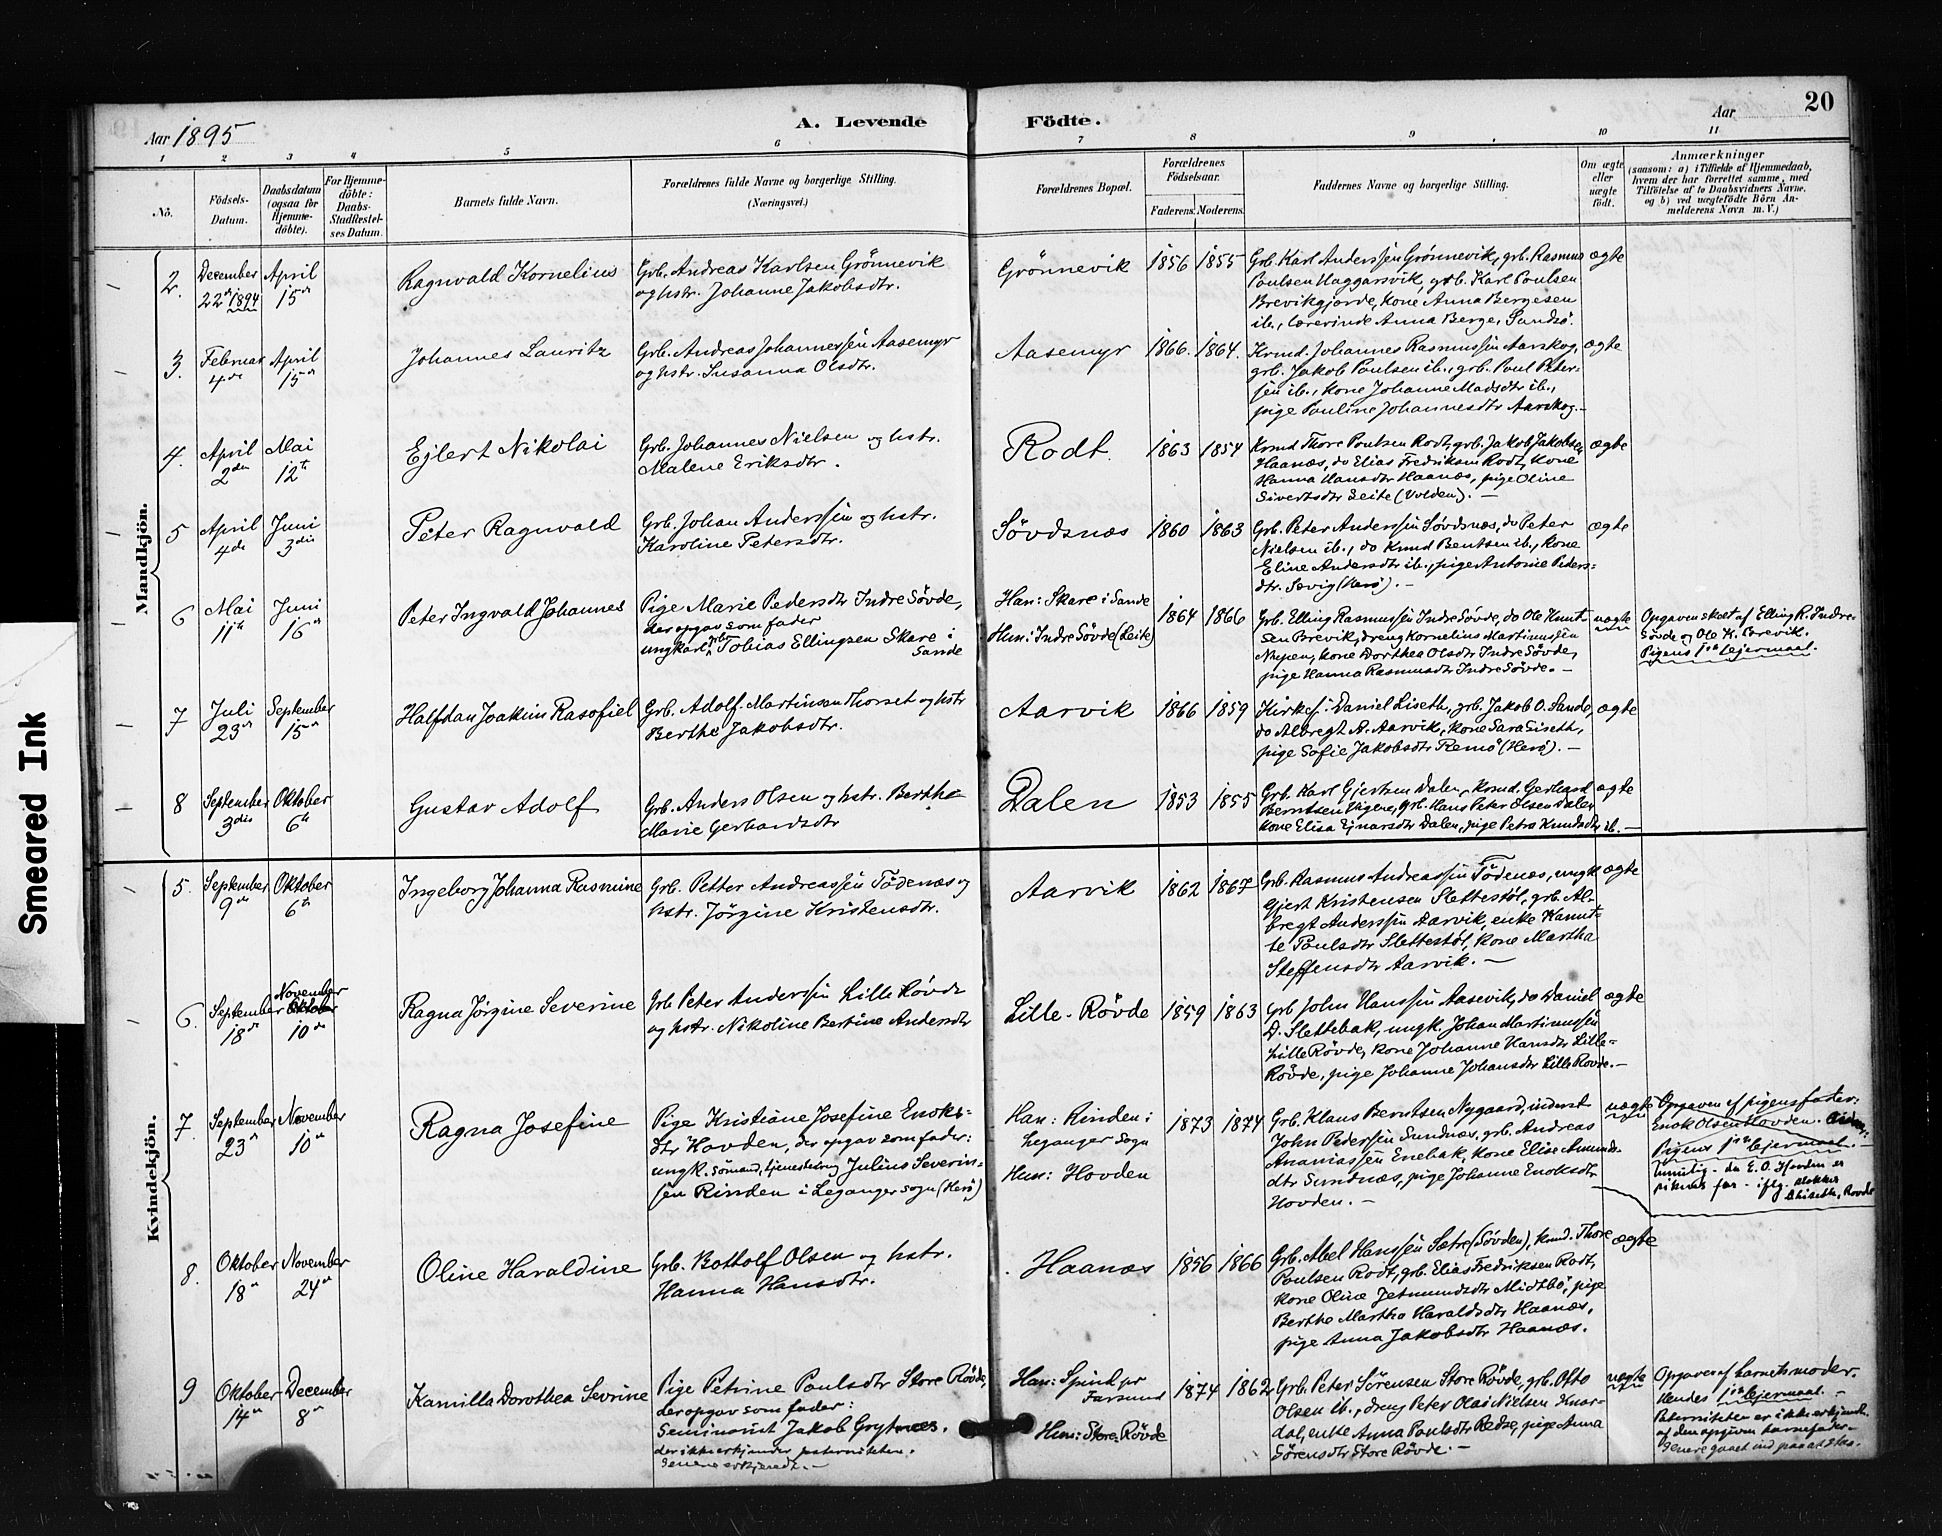 Smeared Ink
20
Aar 1895
A. Levende Födte.
Aar
1 2 3 4 5 6 7 8 9 10 11
No.
Födsels-Datum.
Daabsdatum (ogsaa for Hjemme-döbte).
For Hjemme-döbte: Daabs-Stadfæstel-ses Datum.
Barnets fulde Navn.
Forældrenes fulde Navne og borgerlige Stilling. (Næringsvei.)
Forældrenes Bopæl.
Forældrenes Födselsaar.
Faderens. Moderens.
Faddernes Navne og borgerlige Stilling.
Om ægte eller uægte født.
Anmærkninger
(saasom: a) i Tilfælde af Hjemmedaab, hvem der har forrettet samme, med Tilföielse af to Daabsvidners Navne. og b) ved uægtefödte Börn An-melderens Navn m. V.)
Mandkjön.
2. December 22de 1894 April 15de Ragnvald Kornelius
Grb. Andreas Karlsen Grönnevik
og hstr. Johanne Jakobsdtr.
Grönnevik 1856 1855
Grb. Karl Anderssen Grönnevik, grb. Rasmus
Poulsen Haggarsvik, grb. Karl Poulsen
Brevikgjerde, kone Anna Bergesen
ib., lærerinde Anna Berge, Sandsö.
ægte
3. Februar 4de April 15de Johannes Lauritz
Grb. Andreas Johannessen Aasemyr
og hstr. Susanna Olsdtr.
Aasemyr 1866. 1864.
Krmd. Johannes Rasmussen Aarskog,
grb. Jakob Poulsen ib., grb. Poul Peter-
sen ib., kone Johanne Madsdtr ib.,
pige Pauline Johannesdtr Aarskog.-
ægte
4. April 2den Mai 12te Ejlert Nikolai
Grb. Johannes Nielsen og hstr.
Malene Eriksdtr.
Rodt. 1863 1854
Krmd Thore Poulsen Rodt, grb. Jakob Jakobsen
Haanæs, do Elias Fredriksen Rodt, kone
Hanna Hansdtr Haanæs, pige Oline
Sivertsdtr Leite (Volden). -
ægte
5 April 4de Juni 3die Peter Ragnvald
Grb. Johan Anderssen og hstr.
Karoline Petersdtr.
Søvdsnæs 1860 1863
Grb. Peter Anderssen Søvdsnæs, do Peter
Nielsen ib., do Knud Bentsen ib., kone
Eline Andersdtr ib., pige Antonie Peders-
dtr. Sævig (Herö). -
ægte
6 Mai 11te Juni 16de Peter Ingvald Johannes
Pige Marie Pedersdtr Indre Søvde,
der opgav som fader
ungkarl, grb Tobias Ellingsen Skare i
Sande
Han: Skare i Sande
Hun: Indre Søvde (Leite)
1864 1866
Grb. Elling Rasmussen Indre Søvde, do Ole Knut-
sen Brevik, dreng Kornelius Martinussen
Nupen, kone Dorthea Olsdtr Indre Søvde,
pige Hanna Rasmusdtr Indre Søvde. -
uægte
Opgaven skeet af Elling R. Indre
Søvde og Ole K. Brevik.
Pigens 1ste lejermaal.
7 Juli 23de September 15de Halfdan Joakim Rasofiel
Grb. Adolf Martinsen Thorset og hstr
Berthe Jakobsdtr.
Aarvik 1866 1859
Kirkes. Daniel Liseth, grb. Jakob O. Sande,
do Albregt A. Aarvik, kone Sara Liseth,
pige Sofie Jakobsdtr Remö (Herö). -
ægte
8 September 3die Oktober 6te Gustav Adolf
Grb. Anders Olsen og hstr. Berthe
Marie Gerhardsdtr
Dalen 1853 1855
Grb. Karl Gjertsen Dalen, krmd. Gerhard
Berntsen Vigene, grb. Hans Peter Olsen Dalen
kone Elisa Ejnarsdtr Dalen, pige Petra Knudsdtr ib. -
ægte
Kvindekjön.
5. September 9de Oktober 6te Ingeborg Johanna Rasmine
Grb. Petter Andreassen Tödenæs og
hstr. Jörgine Kristensdtr.
Aarvik 1862 1867
Grb. Rasmus Andreassen Tödenæs, ungk
Gjert Kristensen Slettestöl, grb. Al-
bregt Anderssen Aarvik, enke Hanut-
te Poulsdtr Slettestöl, kone Martha
Steffensdtr Aarvik. -
ægte
6. September 18de November Oktober 10de Ragna Jörgine Severine
Grb Peter Anderssen Lille Røvde
og hstr. Nikoline Bertine Andersdtr
Lille-Røvde 1859 1863
Grb John Hanssen Aasevik, do Daniel
D. Slettebak, ungk. Johan Martinussen
Lille Røvde, kone Johanne Hansdtr Lille-
Røvde, pige Johanne Johansdtr Lille Røvde. -
ægte
7. September 23de November 10de Ragna Josefine
Pige Kristiane Josefine Enoks-
dtr Hovden, der opgav som fader:
ungk. sömand, tjenestekarl Julius Severin-
sen Rinden i Leganger sogn (Herö)
Han: Rinden i
Leganger sogn
Hun: Hovden
1873 1874
Grb. Klaus Berntsen Nygaard, inderst
John Pederssen Sundnæs, grb. Andreas
Ananiassen Enebak, kone Elise Amunds-
dtr Sundnæs, pige Johanne Enoksdtr
Hovden. -
uægte
Opgaven af pigens fader:
Enok Olsen Hovden.
Pigens 1ste lejermaal.
Umulig - da E. O. Hovden er
pikens far - iflg.
Røvde
8. Oktober 18de November 24de Oline Haraldine
Grb. Bottolf Olsen og hstr.
Hanna Hansdtr.
Haanæs 1856 1866
Grb. Abel Hanssen Sætre (Søvden), krmd. Thore
Poulsen Rodt, grb. Elias Fredriksen Rodt,
kone Oline Jetmundsdtr Midtbö, pige
Berthe Martha Haraldsdtr Haanæs,
pige Anna Jakobsdtr Haanæs.
ægte
9 Oktober 14de December 8de Kamilla Dorothea Sevrine
Pige Petrine Poulsdtr Store Røvde,
der opgav som fader:
Seminarist Jakob Grytnes.
der ikke erkjender paterniteten.
Senere erkjendt. -
Han: Spind pr
Farsund
Hun: Store-Røvde
1874 1862
Grb. Peter Sörensen Store Røvde, grb. Otto
Olsen ib., dreng Peter Olai Nielsen Knar-
dal, enke Anna Poulsdtr Redse, pige Anna
Sörensdtr Store Røvde. -
uægte
Opgaven af barnets moder.
Hendes 1ste lejermaal. -
Paterniteten er ikke erkjendt
af den opgivne barnefader. -
Senere gaaet ind paa at